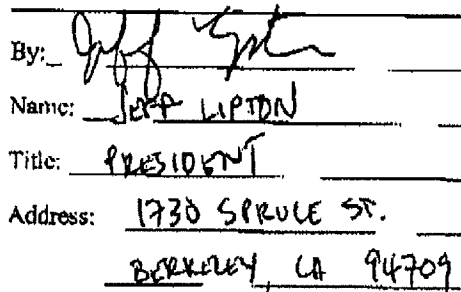 By:
Name: JEFF LIPTON
Title: PRESIDENT
Address: 1730 SPRUCE ST.
BERKELEY, CA 94709